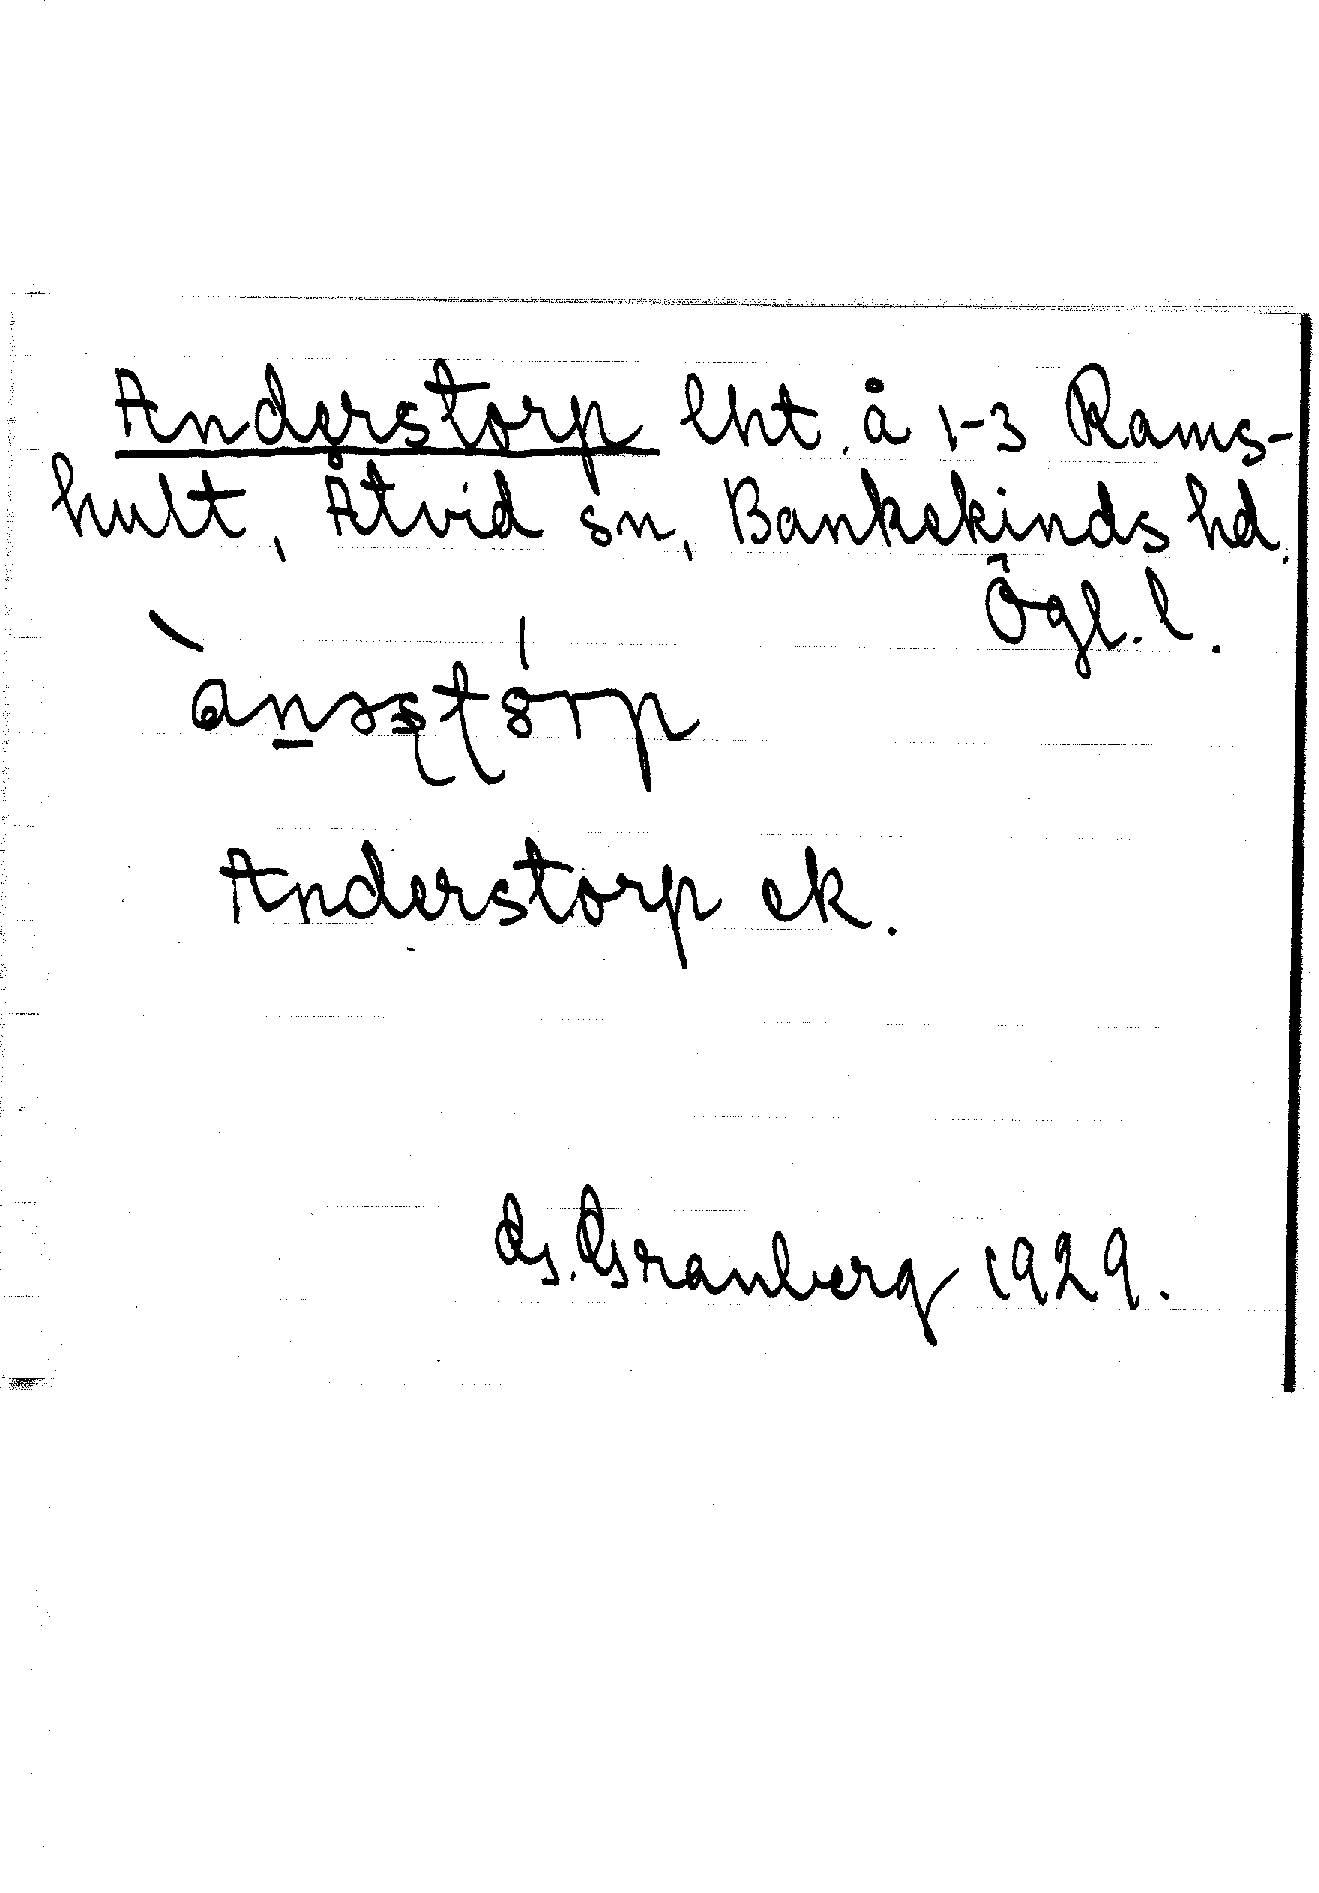 Anderstorp lht. å 1-3 Rams-
hult, Åtvid sn, Bankekinds hd.
Ögl. l.
Anderstorp ek.
G. Granberg 1929.